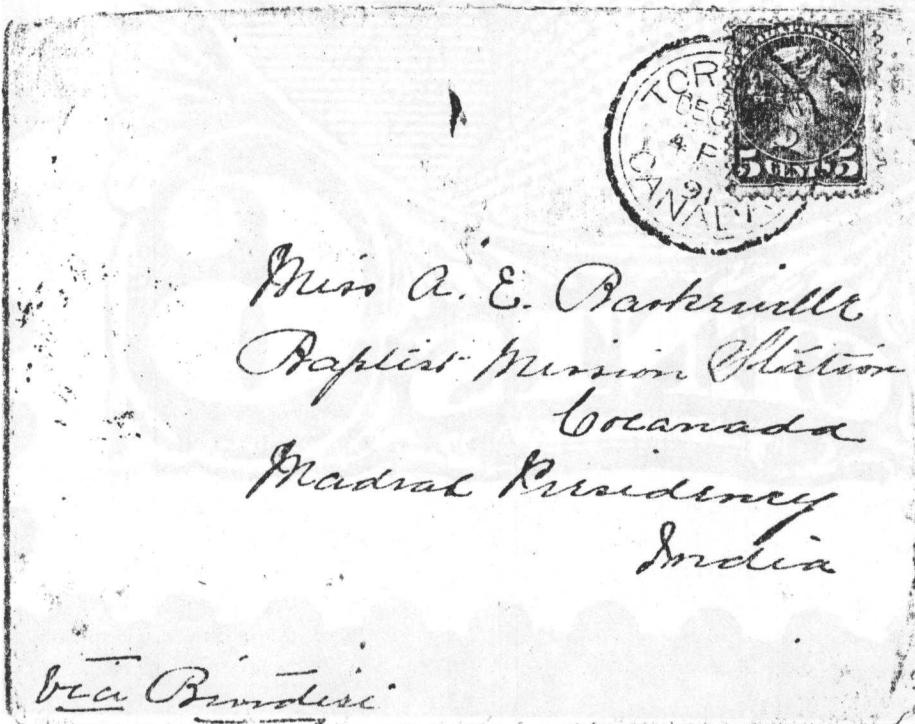 TOR
DEC
4 P
91
CANADA
5 CENTS 5
Miss A. E. Baskerville
Baptist Mission Station
Cocanada
Madras Presidency
India
via Brindisi